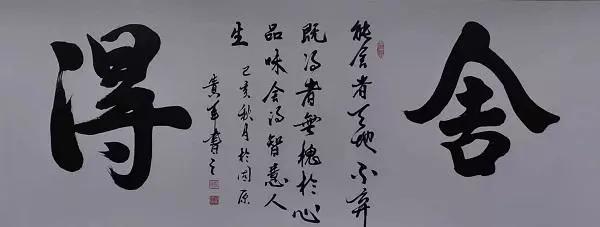 舍
能舍者天地不弃
既得者無愧於心
品味舍得智慧人
生
己亥秋月於固原
貴军書之
得